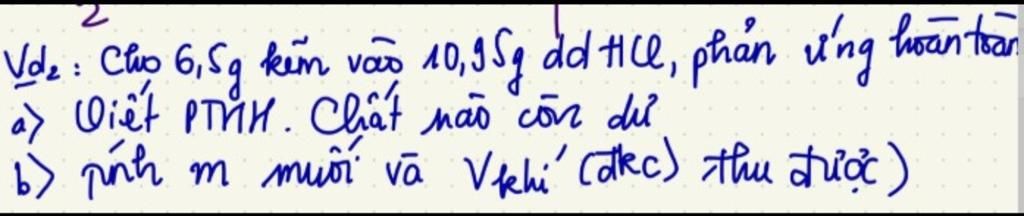 2
Vd₂: Cho 6,5g kẽm vào 10,95g dd HCl, phản ứng hoàn toàn
a) Viết PTHH. Chất nào còn dư
b) Tính m muối và V khí (đkc) thu được)